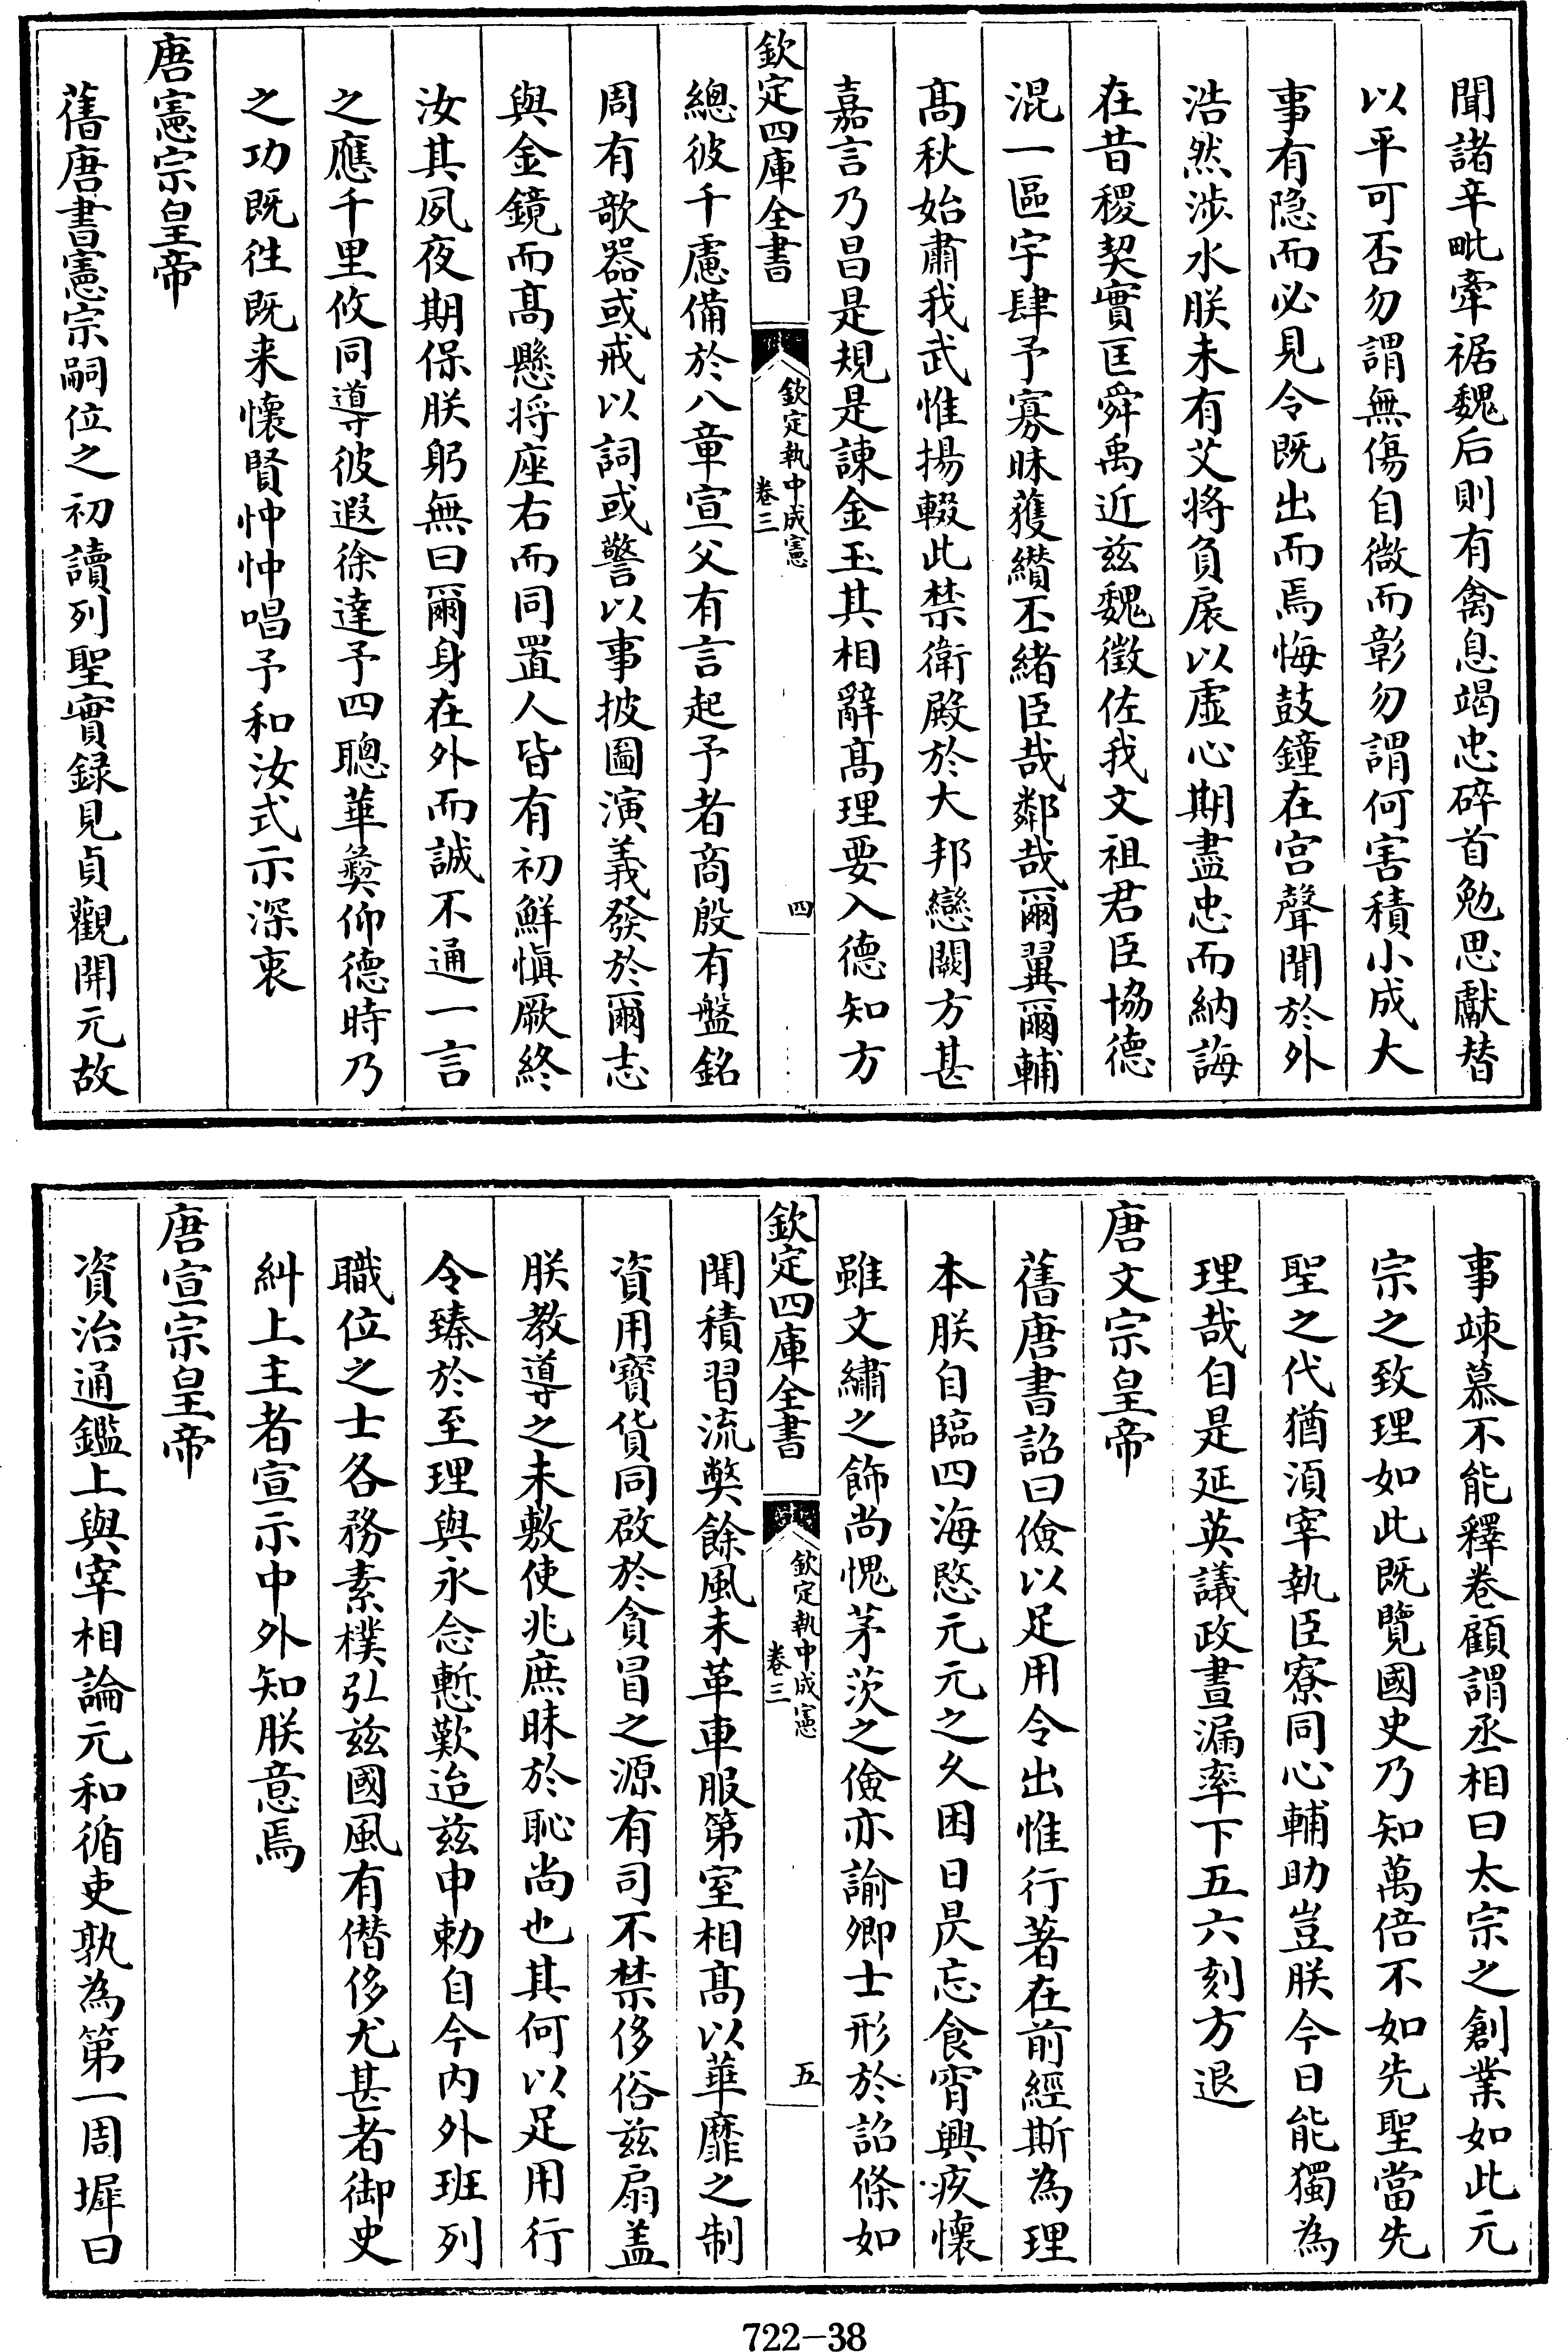 聞諸辛毗牽裾魏后則有禽息竭忠碎首勉思獻替
以平可否勿謂無傷自微而彰勿謂何害積小成大
事有隐而必見令既出而焉悔鼓鐘在宫聲聞於外
浩然涉水朕未有艾將負扆以虚心期盡忠而納誨
在昔稷契實匡舜禹近兹魏徵佐我文祖君臣協德
混一區宇肆予寡昧獲纘丕緒臣哉鄰哉爾翼爾輔
髙秋始肅我武惟揚輟此禁衛殿於大邦戀闕方甚
嘉言乃昌是規是諫金玉其相辭髙理要入德知方
欽定四庫全書
欽定執中成憲
卷三
四
總彼千慮備於八章宣父有言起予者商殷有盤銘
周有欹器或戒以詞或警以事披圖演義發於爾志
與金鏡而髙懸將座右而同置人皆有初鮮慎厥終
汝其夙夜期保朕躬無曰爾身在外而誠不通一言
之應千里攸同導彼遐徐達予四聰華彝仰德時乃
之功既徃既来懷賢忡忡唱予和汝式示深衷
唐憲宗皇帝
舊唐書憲宗嗣位之初讀列聖實録見貞觀開元故
事竦慕不能釋卷顧謂丞相曰太宗之創業如此元
宗之致理如此既覽國史乃知萬倍不如先聖當先
聖之代猶湏宰執臣寮同心輔助豈朕今日能獨為
理哉自是延英議政晝漏率下五六刻方退
唐文宗皇帝
舊唐書詔曰儉以足用令出惟行著在前經斯為理
本朕自臨四海愍元元之久困日昃忘食宵興疚懷
雖文繡之飾尚愧茅茨之儉亦諭卿士形於詔條如
欽定四庫全書
欽定執中成憲
卷三
五
聞積習流弊餘風未革車服第室相髙以華靡之制
資用寳貨同啟於貪冒之源有司不禁侈俗兹扇盖
朕教導之未敷使兆庶昧於恥尚也其何以足用行
令臻於至理與永念慙歎迨兹申勅自今内外班列
職位之士各務素樸弘兹國風有僭侈尤甚者御史
糾上主者宣示中外知朕意焉
唐宣宗皇帝
資治通鑑上與宰相論元和循吏孰為第一周墀曰
722-38